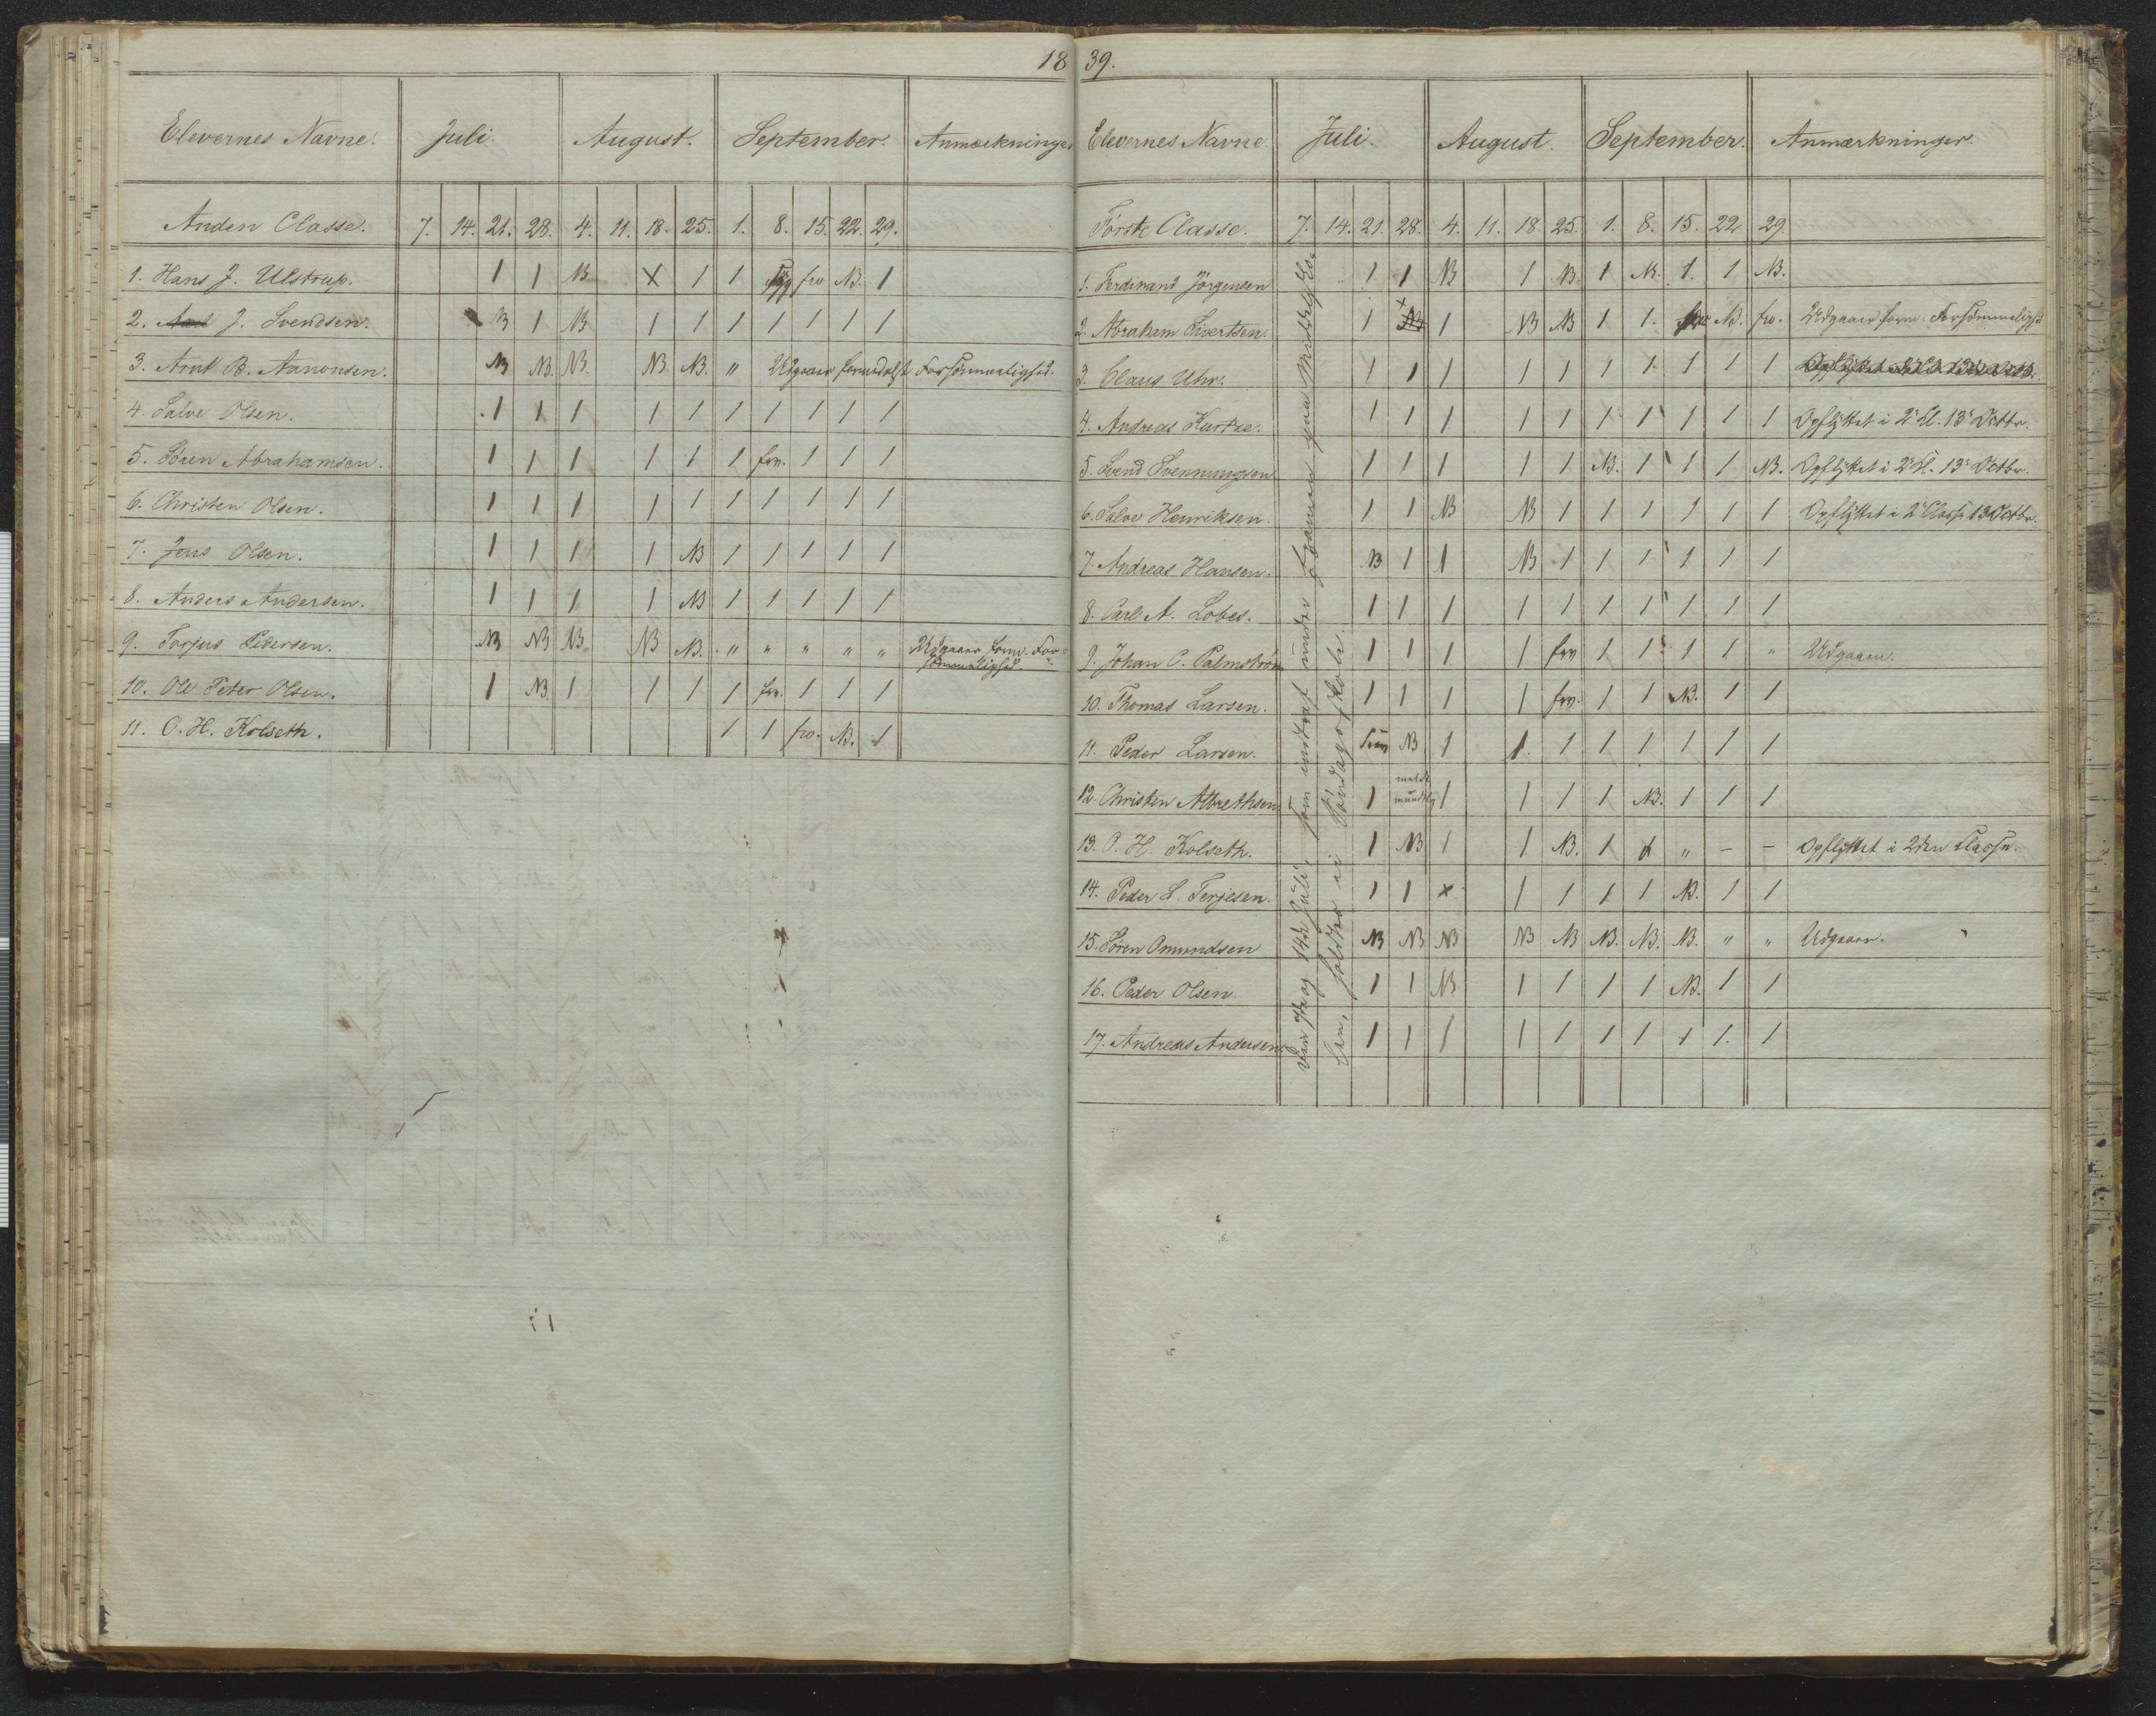 18
Elevernes Navne. Juli. August. September. Anmærkninger
Anden Classe. 7. 14. 21. 28. 4. 11. 18. 25. 1. 8. 15. 22. 29.
1. Hans J. Ulstrup. 1 1 NB X 1 1 Syg frv NB. 1
2. J. Svendsen. NB 1 NB 1 1 1 1 1 1 1
3. Arnt B. Aanonsen. NB NB. NB NB NB. " Udgaaer formedelst Forsömmelighed.
4. Salve Olsen. 1 1 1 1 1 1 1 1 1 1
5. Sören Abrahamsen. 1 1 1 1 1 1 frv. 1 1 1
6. Christen Olsen. 1 1 1 1 1 1 1 1 1 1
7. Jens Olsen. 1 1 1 1 NB 1 1 1 1 1
8. Anders Andersen. 1 1 1 1 NB 1 1 1 1 1
9. Torjus Pedersen. NB NB NB NB NB. " " " " " Udgaaer form. For=
sömmelighed.
10. Ole Peter Olsen. 1 NB. 1 1 1 1 frv. 1 1 1
11. O. H. Kolseth. 1 1 frv. NB. 1
39.
Elevernes Navne Juli. August. September. Anmærkninger.
Förste Classe. 7. 14. 21. 28. 4. 11. 18. 25. 1. 8. 15. 22 29.
1. Ferdinand Jörgensen 1 1 NB 1 NB. 1 NB. 1. 1 NB.
2. Abraham Sivertsen. 1 NB x 1 NB NB 1 1. frv NB. frv. Udgaaer form. Forsömmeligh
3. Claus Uhr. 1 1 1 1 1 1 1 1 1 1
4. Andreas Kurtze. 1 1 1 1 1 1 1 1 1 1 Opflyttet i 2 Cl. 13 Octbr.
5. Svend Svenningsen 1 1 1 1 1 NB. 1 1 1 NB. Opflyttet i 2 Cl. 13 Octbr.
6. Salve Henriksen. 1 1 NB NB 1 1 1 1 1 1 Opflyttet i 2 Classe 13 Octbr.
7. Andreas Hansen. NB 1 1 NB 1 1 1 1 1 1
8. Carl A. Lobes. 1 1 1 1 1 1 1 1 1 1
9. Johan C. Palmström 1 1 1 1 frv 1 1 1 1 " Udgaaer.
10. Thomas Larsen. 1 1 1 1 frv. 1 1 NB. 1 1
11. Peder Larsen. NB 1 1. 1 1 1 1 1 1
12. Christen Albrethsen 1 meldt mundtlig 1 1 1 1 NB. 1 1 1
13. O. H. Kolseth. 1 NB 1 1 NB. 1 1 " – – Opflyttet i 2den Classe.
14. Peder S. Terjesen. 1 1 x 1 1 1 1 NB. 1 1
15. Sören Omundsen NB NB NB NB NB NB. NB. NB. " " Udgaaer.
16. Peder Olsen. 1 1 NB 1 1 1 1 NB. 1 1
17. Andreas Andersen 1 1 1 1 1 1 1 1 1. 1
Den 7de og 14de Juli, som indtraf under Examen ved Middelsko-
len, holdtes ei Söndagsskole